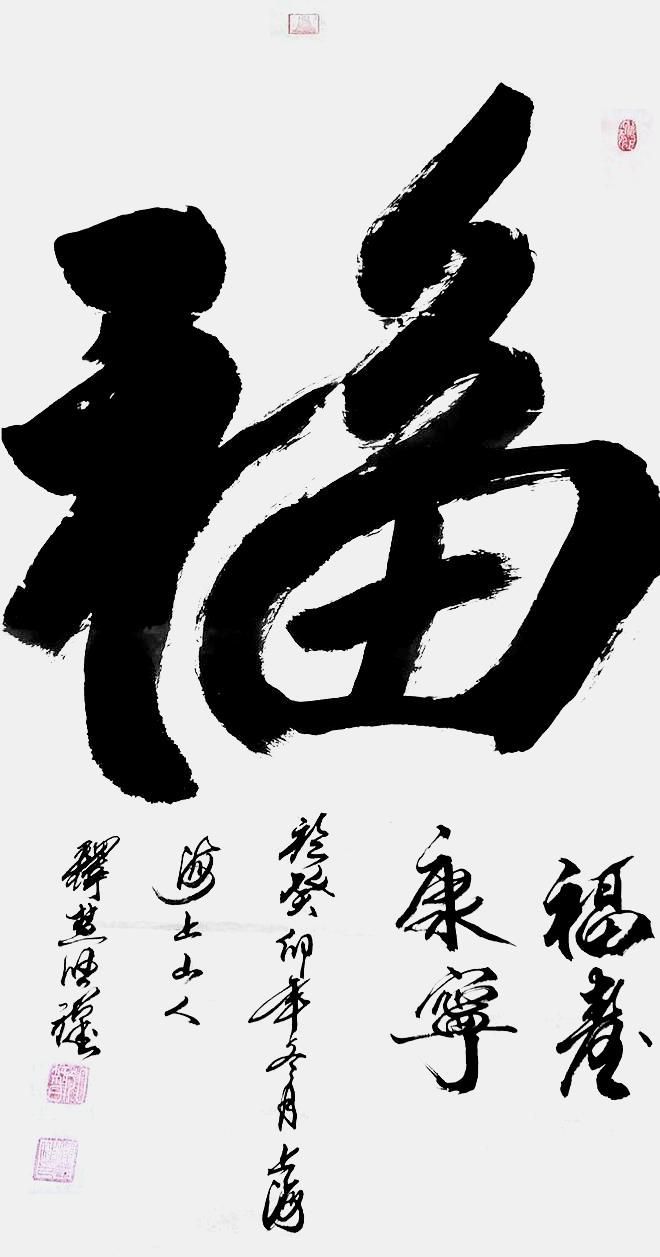 福
福壽
康寧
於癸卯年冬月上海
海上山人
釋慧